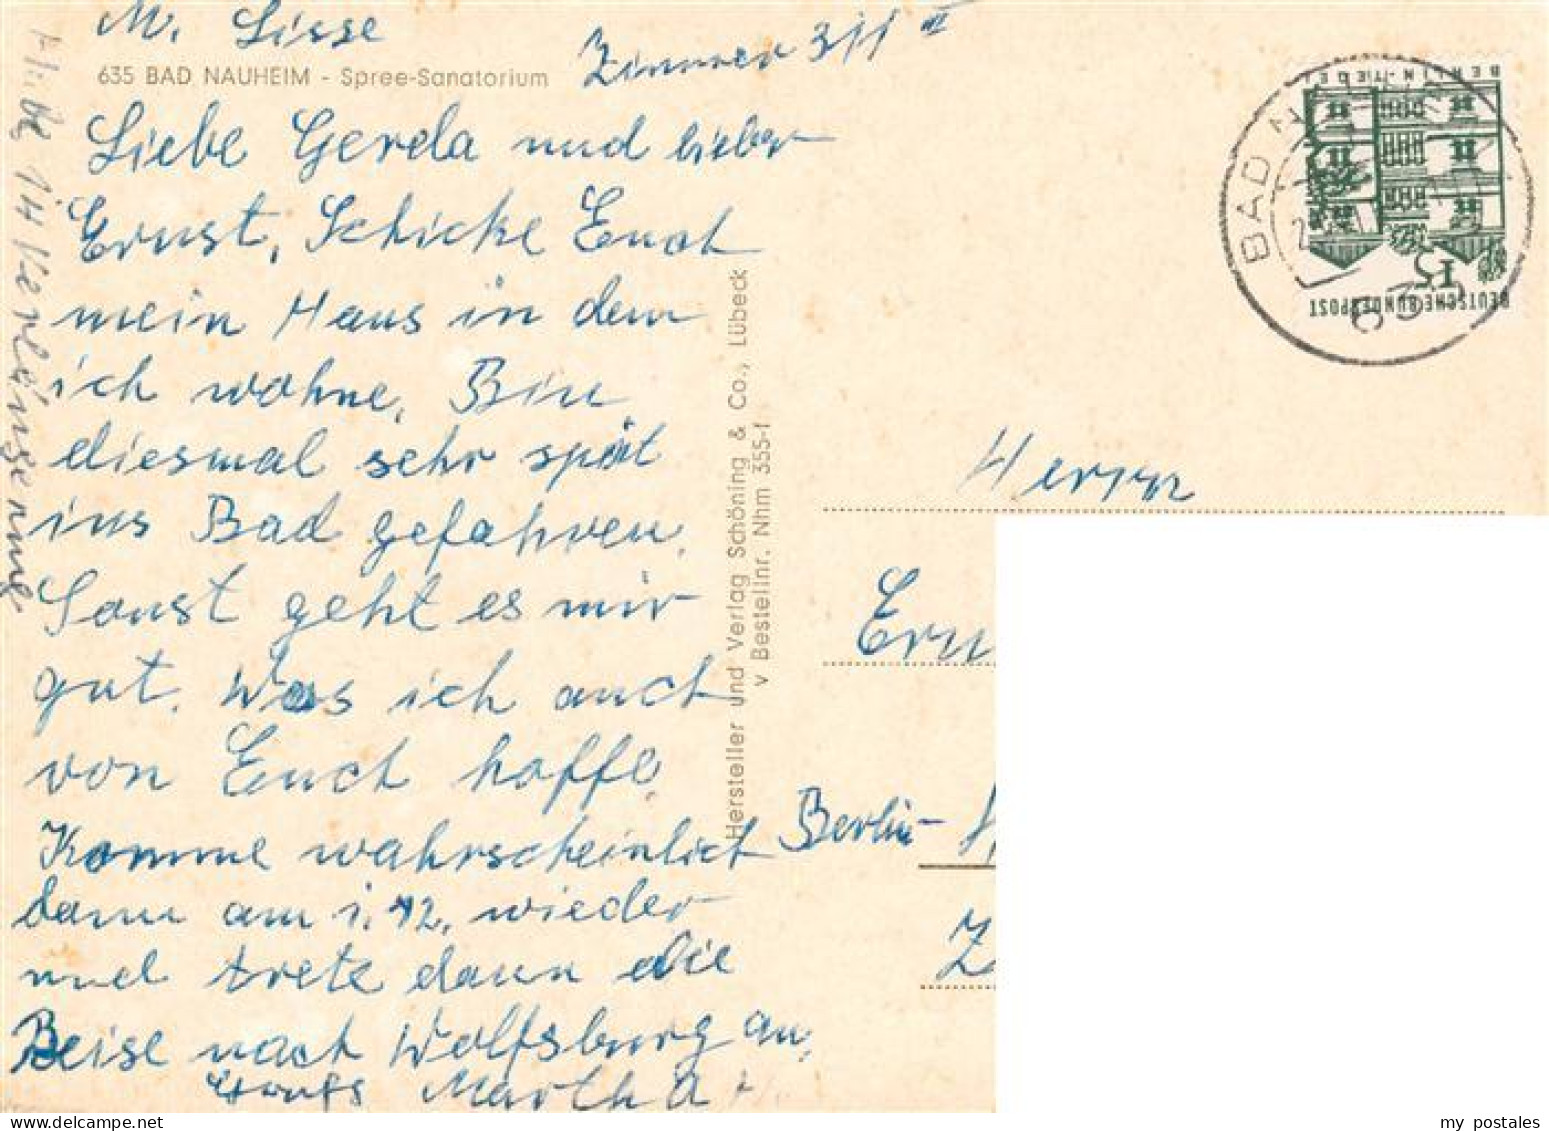 M. Lisse
Zimmer 311 III
635 BAD NAUHEIM - Spree-Sanatorium
Liebe Gerda und lieber
Ernst, Schicke Euch
mein Haus in dem
ich wohne. Bin
diesmal sehr spät
ins Bad gefahren.
Sonst geht es mir
gut. Was ich auch
von Euch hoffe.
Komme wahrscheinlich
dann am 1.12. wieder
und trete dann die
Reise nach Wolfsburg an.
Gruß Martha
14 Verlängerung
Hersteller und Verlag Schöning & Co., Lübeck
v Bestellnr. Nhm 355-1
BAD N
635
BERLIN-TEGEL
15
DEUTSCHE BUNDESPOST
Herrn
Ern
Berlin-
my postales